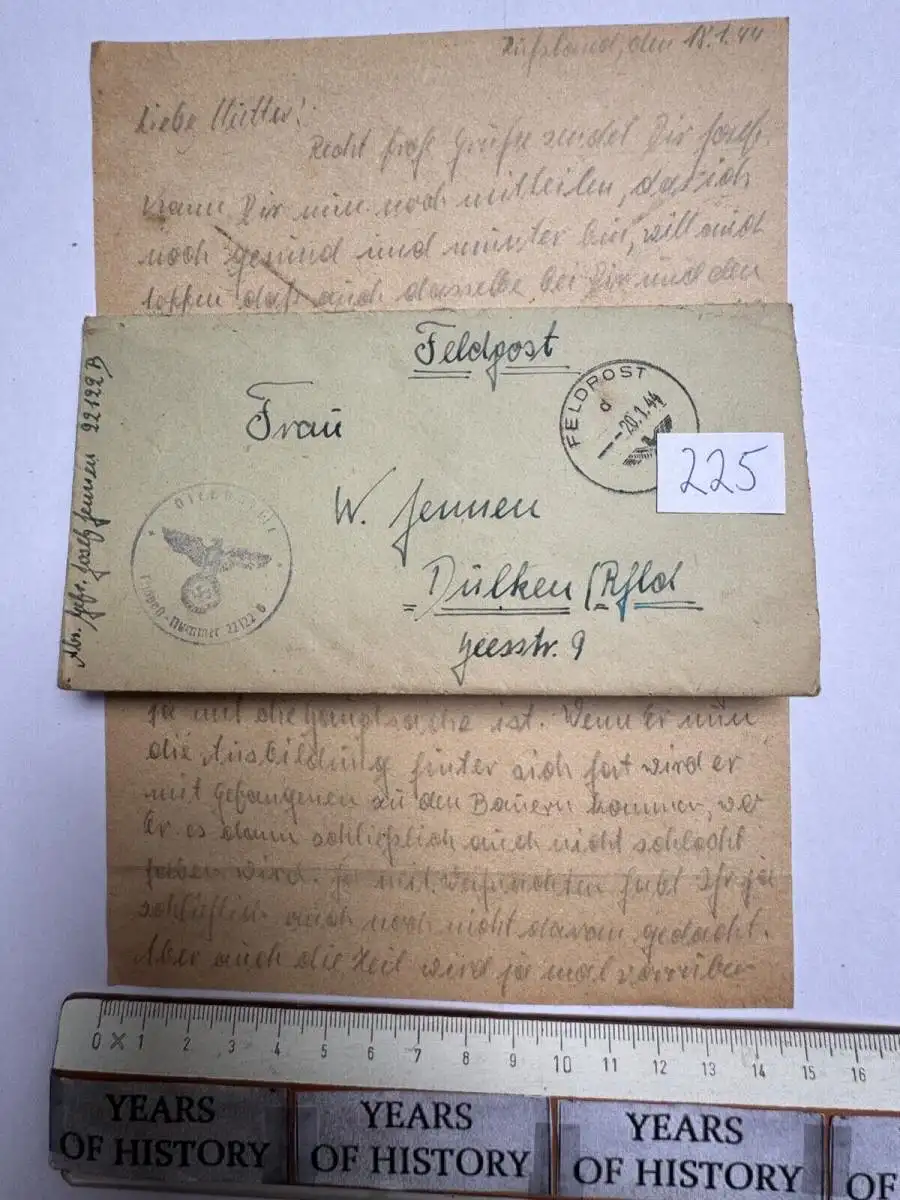 Rußland, den 18.1.44
Liebe Mutter!
Recht frohe Grüße sendet Dir Josef.
Kann Dir nun noch mitteilen, das ich
noch gesund und munter bin, will auch
hoffen daß auch dasselbe bei Dir und den
Feldpost
Frau
W. Jennen
Dülken (Rhld
Heesstr. 9
Abs. Gefr. Josef Jennen 22122 B
FELDPOST
d
--20.1.44
225
Dienst
Nummer 22122 B
ja mit die Hauptsache ist. Wenn Er nun
die Ausbildung hinter sich hat wird er
mit Gefangenen zu den Bauern kommen, wo
Er es dann schließlich auch nicht schlecht
haben wird. Ja mit Weihnachten habt Ihr ja
schließlich auch noch nicht daran gedacht.
Aber auch die Zeit wird ja mal vorrüber
0 1 2 3 4 5 6 7 8 9 10 11 12 13 14 15 16
YEARS OF HISTORY
YEARS OF HISTORY
YEARS OF HISTORY
OF